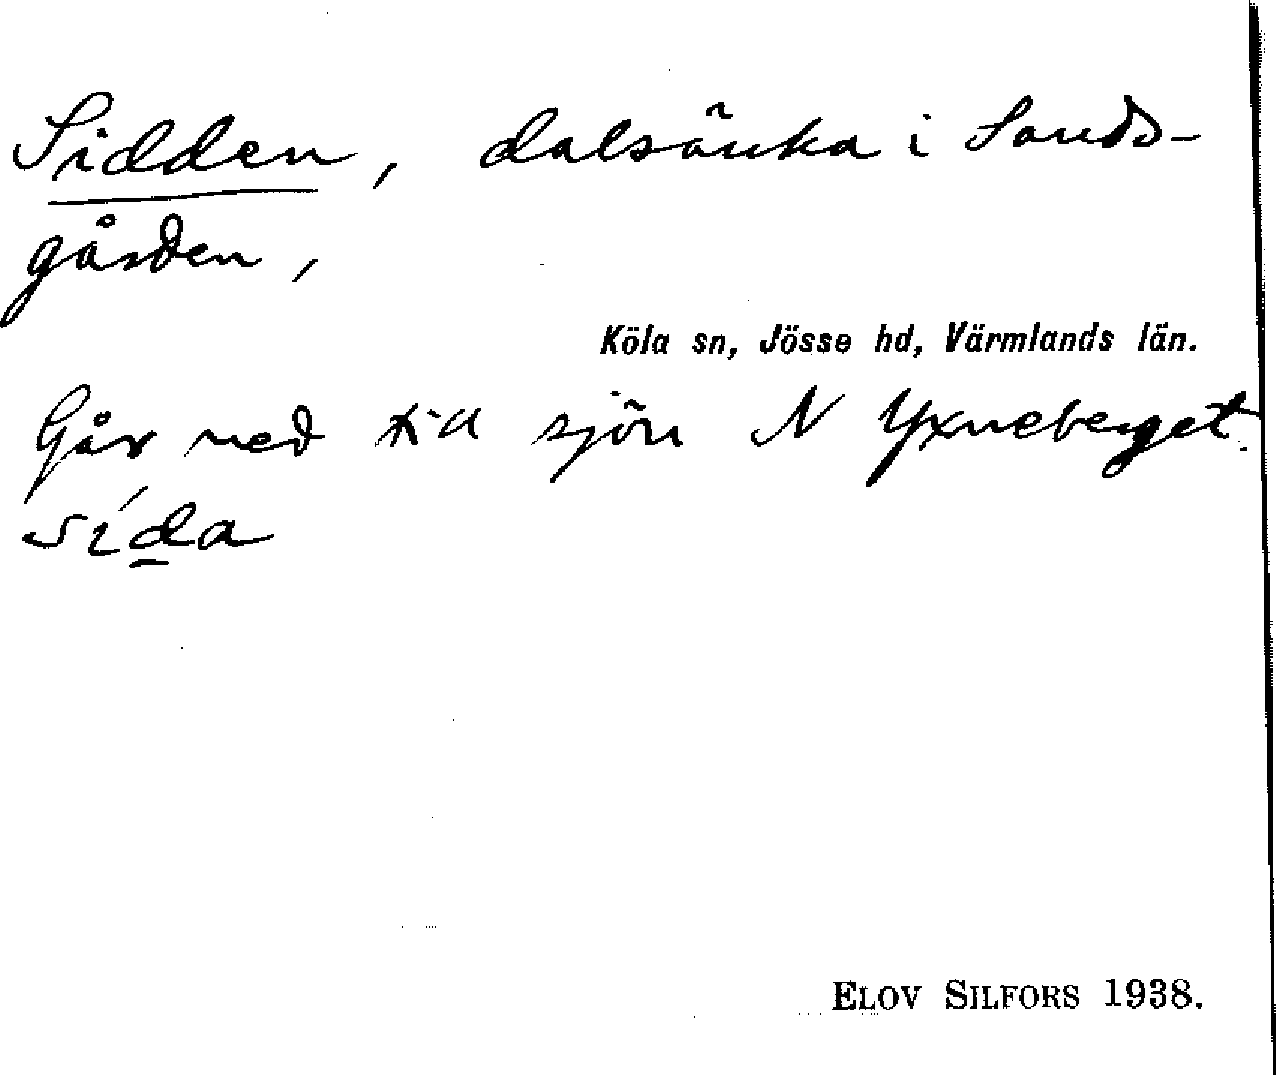 Sidden, dalsänka i Sands-
gården,
Köla sn, Jösse hd, Värmlands län.
Går ned till sjön N Yxneberget.
sída
ELOV SILFORS 1938.